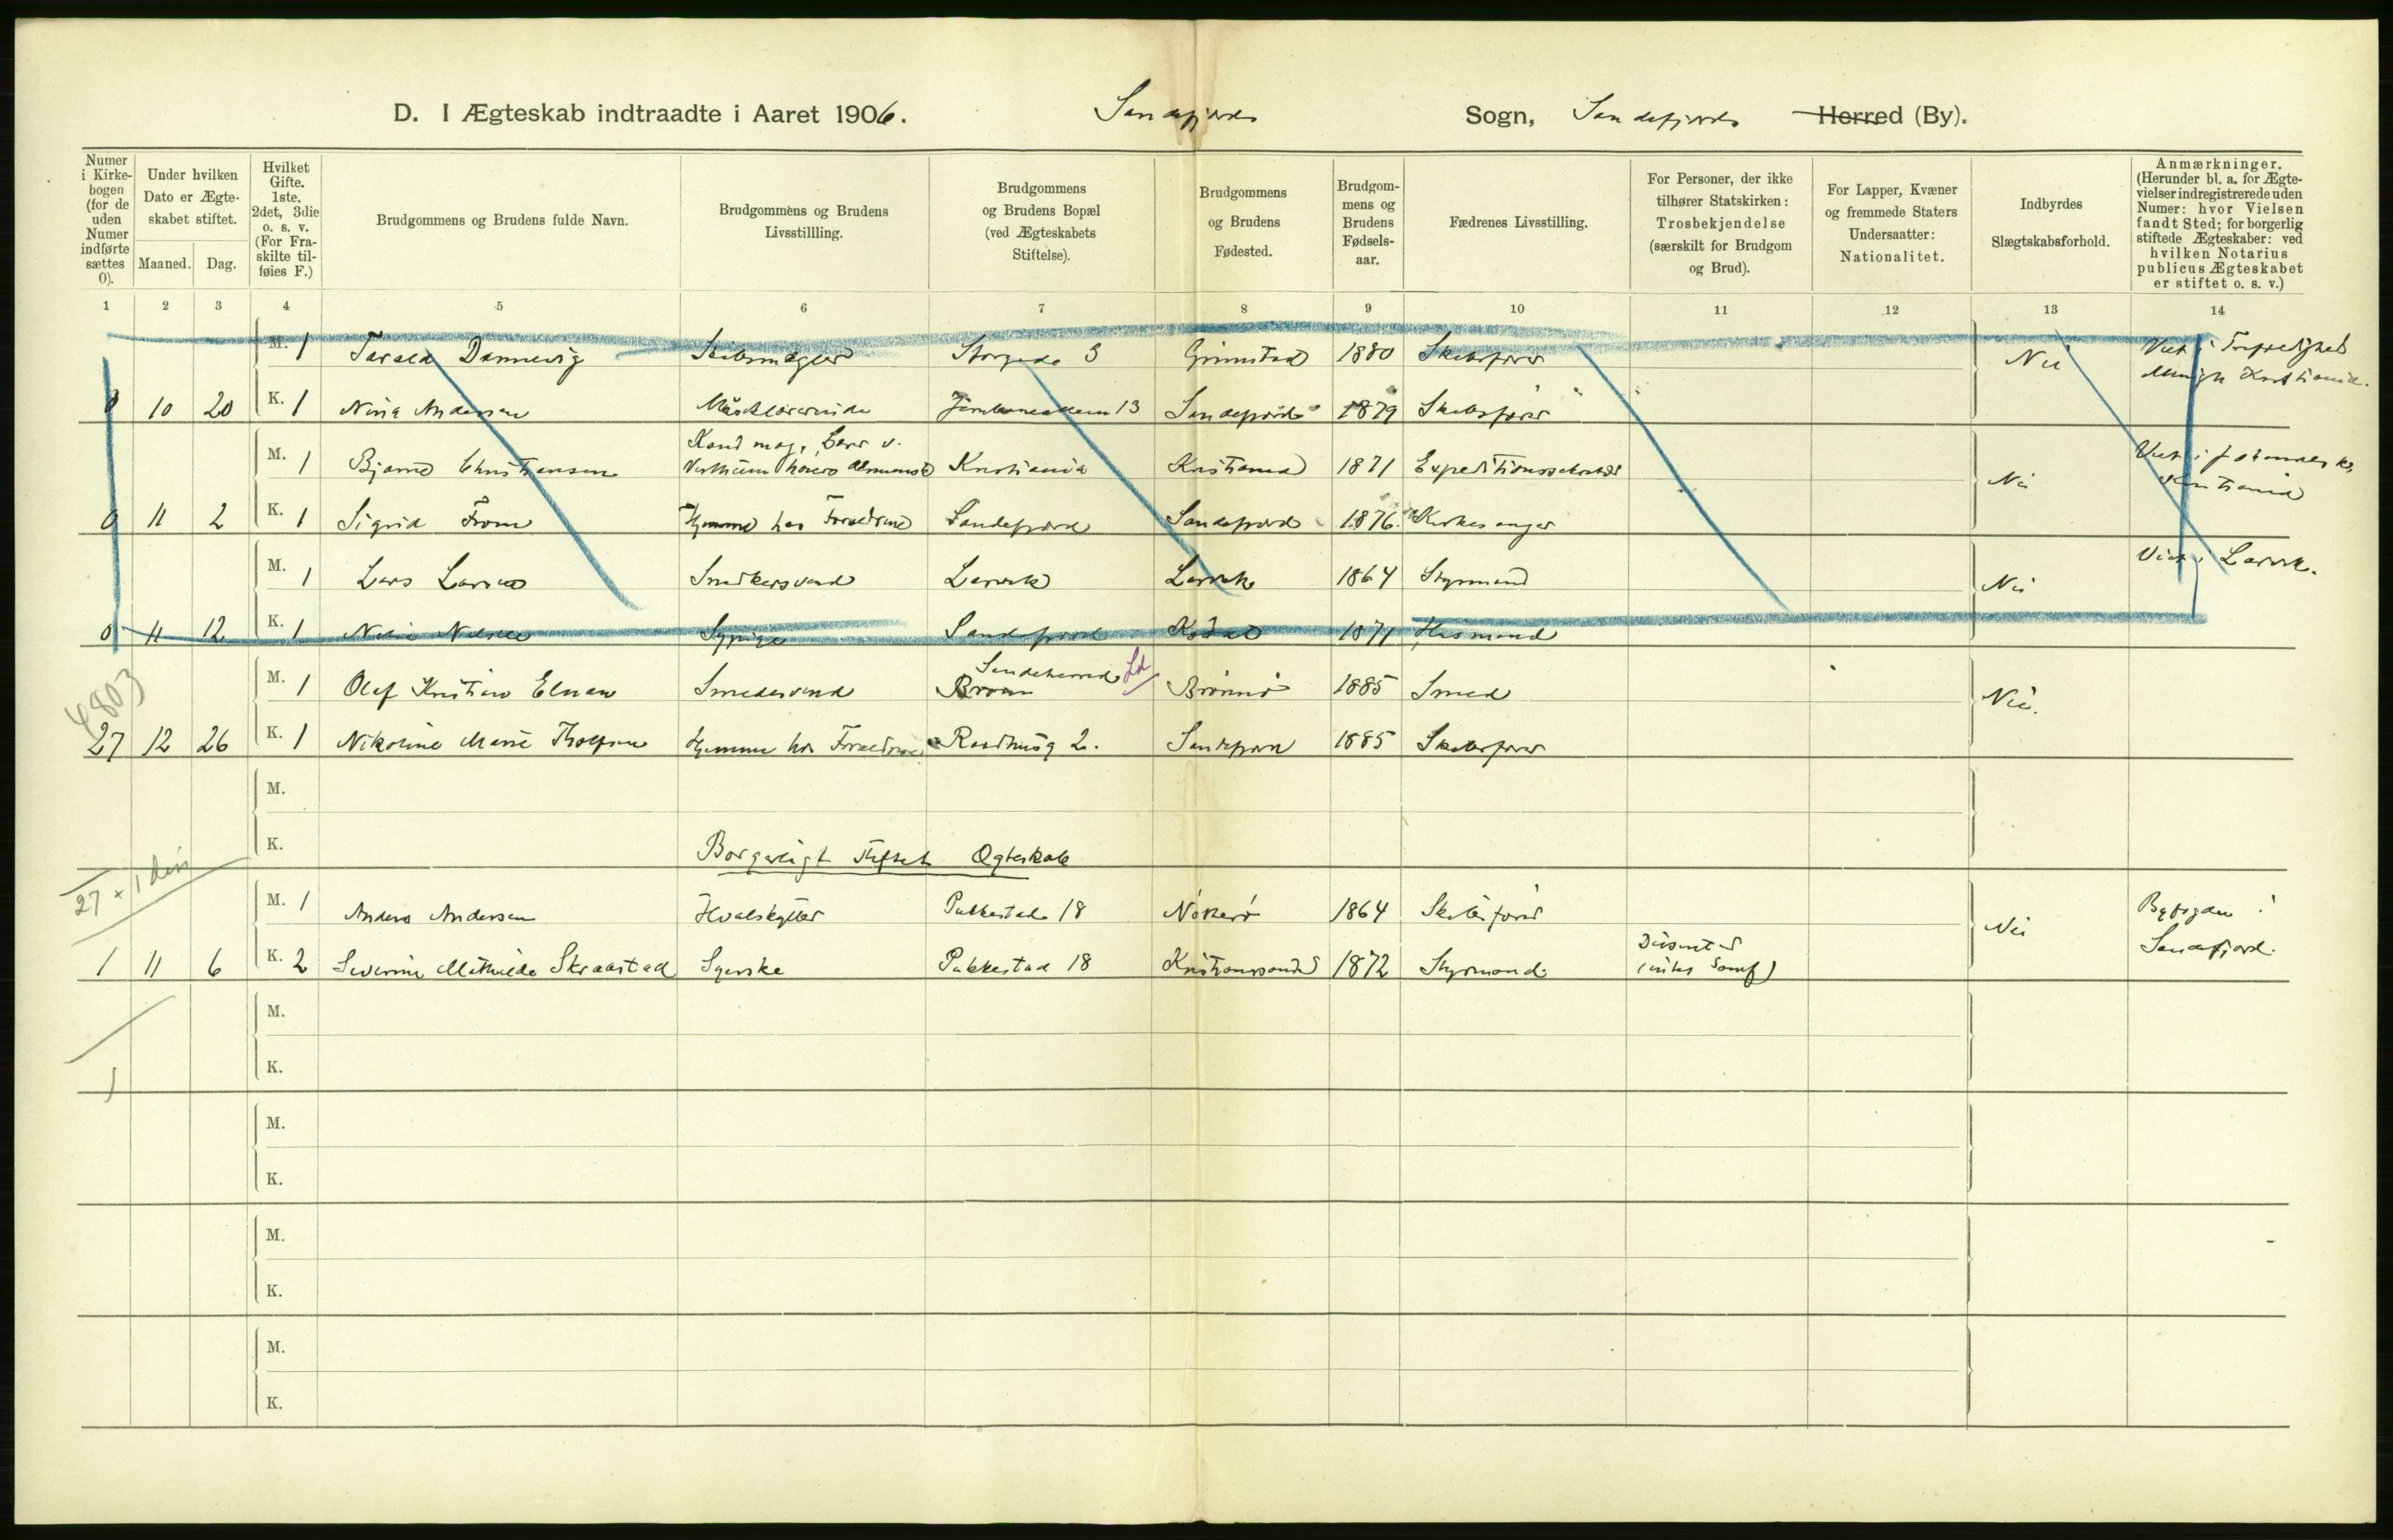 D. I Ægteskab indtraadte i Aaret 1906. Sandefjords Sogn, Sandefjords Herred (By).
Numer i Kirkebogen (for de uden Numer indførte sættes 0).
Under hvilken Dato er Ægteskabet stiftet.
Maaned. Dag.
Hvilket Gifte. 1ste, 2det, 3die o. s. v. (For Fraskilte tilføies F.)
Brudgommens og Brudens fulde Navn.
Brudgommens og Brudens Livsstillling.
Brudgommens og Brudens Bopæl (ved Ægteskabets Stiftelse).
Brudgommens og Brudens Fødested.
Brudgommens og Brudens Fødselsaar.
Fædrenes Livsstilling.
For Personer, der ikke tilhører Statskirken: Trosbekjendelse (særskilt for Brudgom og Brud).
For Lapper, Kvæner og fremmede Staters Undersaatter: Nationalitet.
Indbyrdes Slægtskabsforhold.
Anmærkninger. (Herunder bl. a. for Ægtevielser indregistrerede uden Numer: hvor Vielsen fandt Sted; for borgerlig stiftede Ægteskaber: ved hvilken Notarius publicus Ægteskabet er stiftet o. s. v.)
1 2 3 4 5 6 7 8 9 10 11 12 13 14
M. 1 Tarald Dannevig Skibsmægler Storgade 3 Grimstad 1880 Skibsfører Nei Viet i Trefoldighed Kristiania.
0 10 20 K. 1 Nina Andersen 13 Sandefjord 1879 Skibsfører
Kand mag,
M. 1 Bjarne Christiansen Kristiania Kristiania 1871 Expeditionssekretær Nei Viet i Kristiania
0 11 2 K. 1 Sigrid From Hjemme hos Forældrene Sandefjord Sandefjord 1876 Kirkesanger
M. 1 Lars Larsen Snedkersvend Larvik Larvik 1864 Styrmand Nei Viet i Larvik.
0 11 12 K. 1 Nilsen Sypige Sandefjord Kodal 1871 Husmand
4803
Sandeherred Ld
M. 1 Olaf Kristian Elnan Smedesvend Brønnø 1885 Smed Nei.
27 12 26 K. 1 Nikoline Marie Hjemme hos Forældrene Raadhusg 2. Sandefjord 1885 Skibsfører
M.
K. Borgerligt stiftet Ægteskab
27 +
M. 1 Anders Andersen Hvalskytter Pukkestad 18 Nøtterø 1864 Skibsfører Nei Byfogden i Sandefjord.
1 11 6 K. 2 Severine Mathilde Skraastad Syerske Pukkestad 18 Kristianssand S 1872 Styrmand Dissenter
M.
K.
1
M.
K.
M.
K.
M.
K.